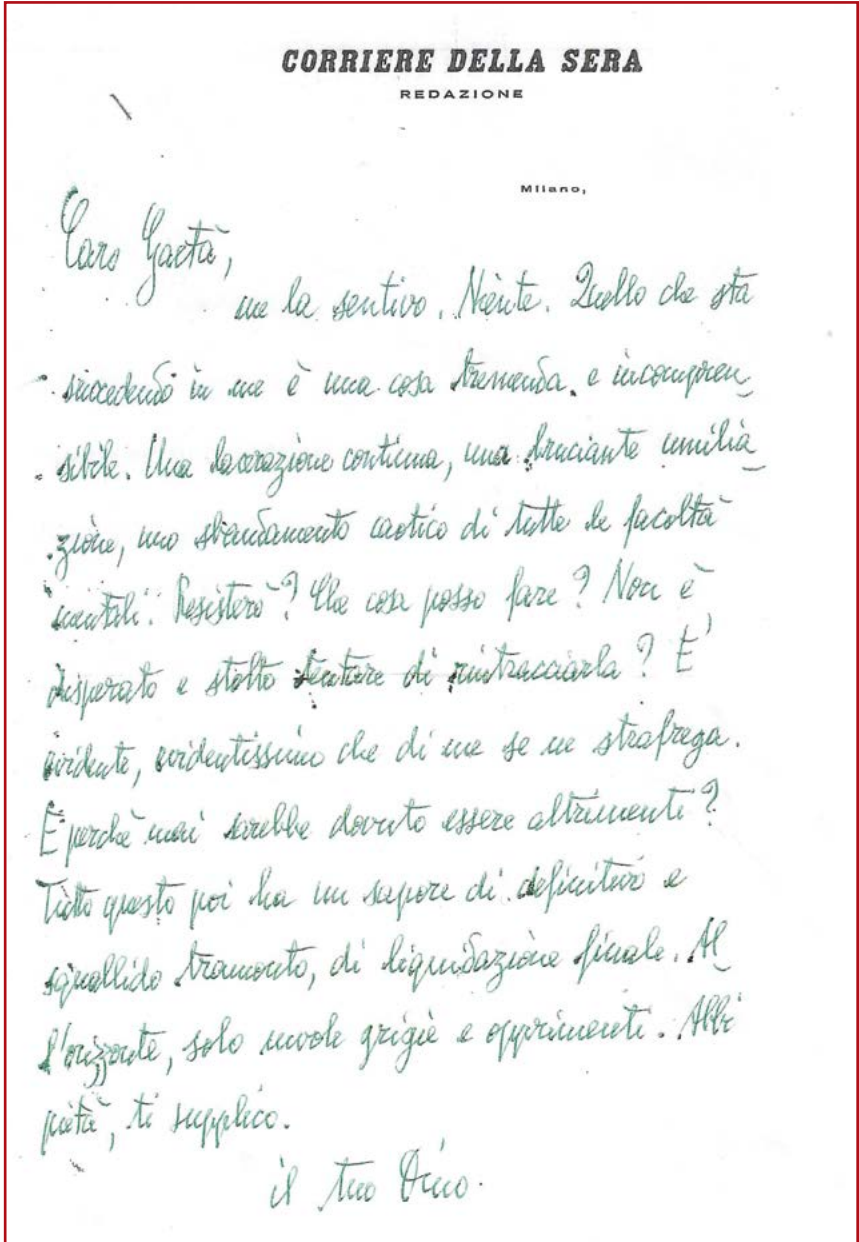 CORRIERE DELLA SERA
REDAZIONE
Milano,
Caro Gaetà,
me la sentivo. Niente. Quello che sta
succedendo in me è una cosa tremenda e incompren_
sibile. Una lacerazione continua, una bruciante umilia_
zione, uno sbandamento caotico di tutte le facoltà
mentali. Resisterò? Che cosa posso fare? Non è
disperato e stolto tentare di rintracciarla? E'
evidente, evidentissimo che di me se ne strafrega.
E perchè mai sarebbe dovuto essere altrimenti?
Tutto questo poi ha un sapore di definitivo e
squallido tramonto, di liquidazione finale. Al_
l'orizzonte, solo nuvole grigie e opprimenti. Abbi
pietà, ti supplico.
il tuo Dino.